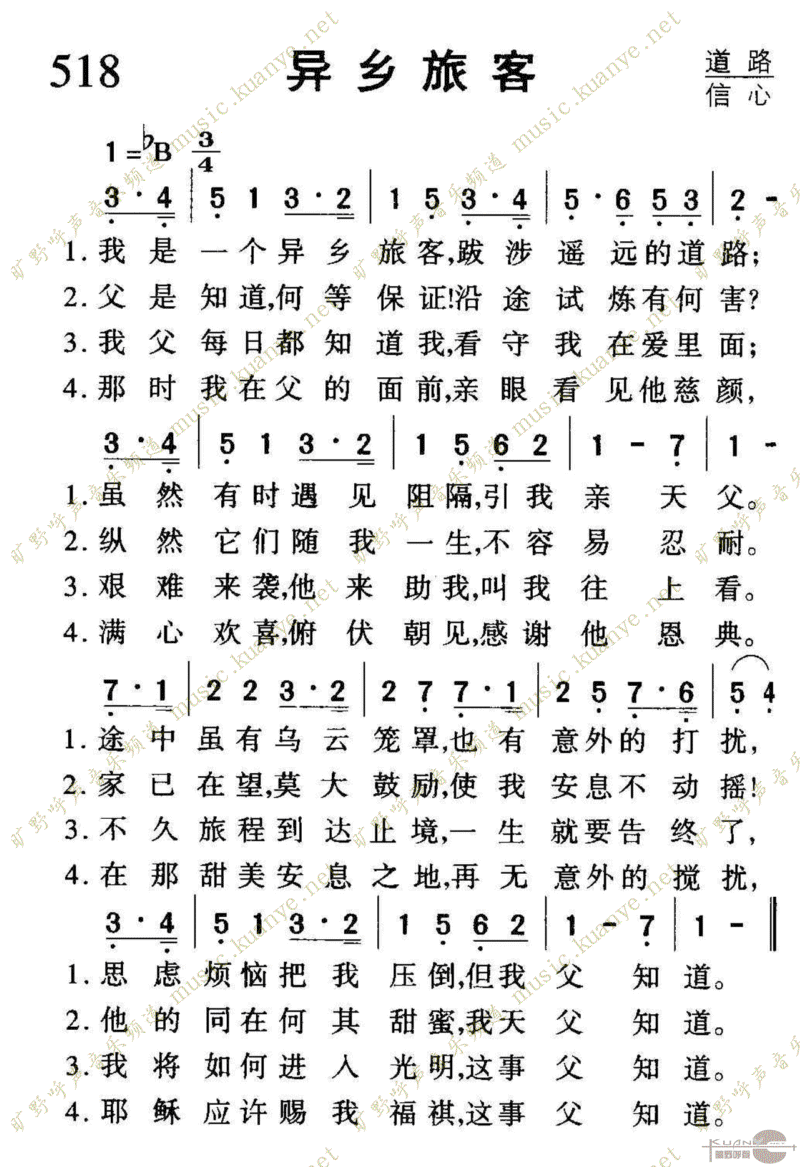 518
异乡旅客
道路
信心
1=♭B 3/4
3·4 | 5 1 3·2 | 1 5 3·4 | 5·6 5 3 | 2 -
1.我是一个异乡旅客,跋涉遥远的道路;
2.父是知道,何等保证!沿途试炼有何害?
3.我父每日都知道我,看守我在爱里面;
4.那时我在父的面前,亲眼看见他慈颜,
3·4 | 5 1 3·2 | 1 5 6 2 | 1 - 7 | 1 -
1.虽然有时遇见阻隔,引我亲天父。
2.纵然它们随我一生,不容易忍耐。
3.艰难来袭,他来助我,叫我往上看。
4.满心欢喜,俯伏朝见,感谢他恩典。
7·1 | 2 2 3·2 | 2 7 7·1 | 2 5 7·6 | 5 4
1.途中虽有乌云笼罩,也有意外的打扰,
2.家已在望,莫大鼓励,使我安息不动摇!
3.不久旅程到达止境,一生就要告终了,
4.在那甜美安息之地,再无意外的搅扰,
3·4 | 5 1 3·2 | 1 5 6 2 | 1 - 7 | 1 - ‖
1.思虑烦恼把我压倒,但我父知道。
2.他的同在何其甜蜜,我天父知道。
3.我将如何进入光明,这事父知道。
4.耶稣应许赐我福祺,这事父知道。
旷野呼声音乐频道 music.kuanye.net
KUANYE
旷野呼声